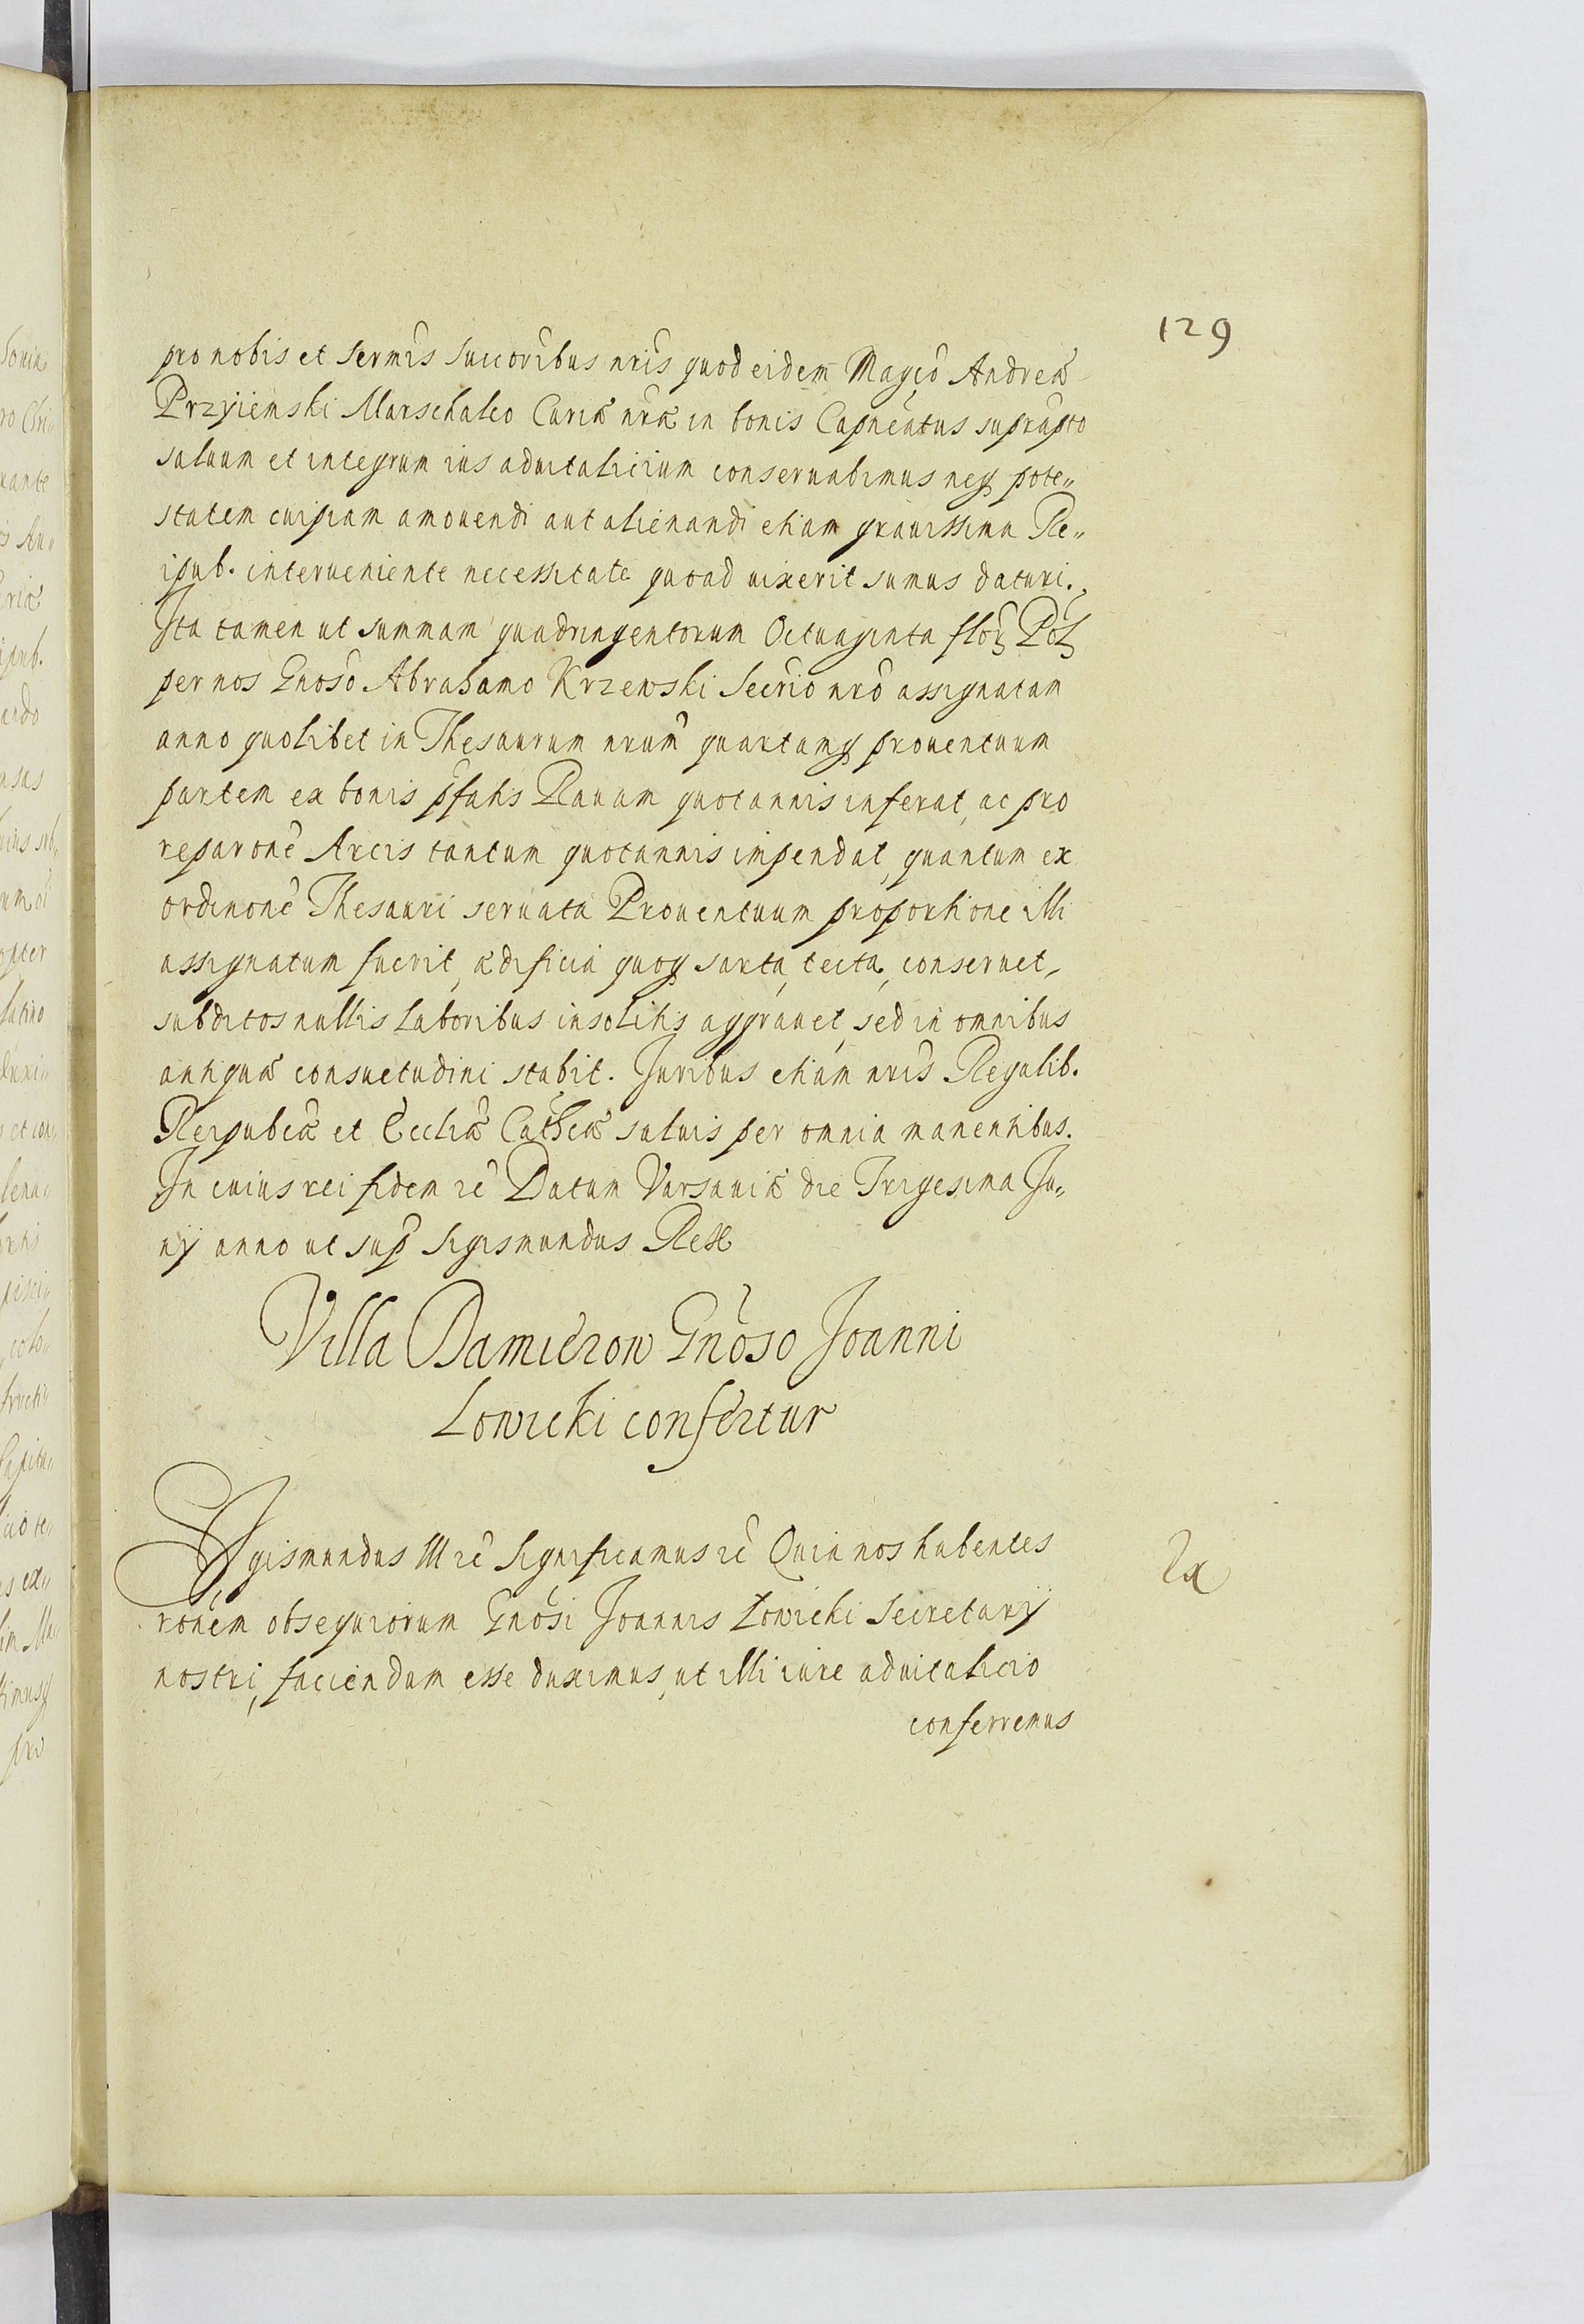 129
pro nobis et Sermis Succoribus nris quod eidem Magco Andreæ
Przyiemski Marschalco Curiæ nræ in bonis Capneatus suprapto
saluum et integrum ius aduitalicium conseruabimus neq pote„
statem cuipiam amouendi aut alienandi etiam grauissima Re„
ipub. interueniente necessitate quoad uixerit sumus daturi.
Ita tamen ut summam quadringentorum Octuaginta flor Pol
per nos Gnoso Abrahamo Krzewski Secrio nro assignatam
anno quolibet in Thesaurum nrum quartamq prouentuum
partem ex bonis pfatis Rauam quotannis inferat, ac pro
reparone Arcis tantum quotannis impendat, quantum ex
ordinone Thesauri seruata Prouentuum proportione illi
assignatum fuerit, ædificia quoq sarta, tecta, conseruet,
subditos nullis laboribus insolitis aggrauet, sed in omnibus
antiquæ consuetudini stabit. Juribus etiam nris Regalib.
Reipubcæ et Eccliæ Cathcæ saluis per omnia manentibus.
In cuius rei fidem rc Datum Varsauiæ die Trigesima Ju„
nij anno ut sup Sigismundus Rex
Villa Damieron Gnoso Joanni
Lowicki confertur
Sigismundus III rc Significamus rc Quia nos habentes
ronem obsequiorum Gnosi Joannis Łowicki Secretarij
nostri, faciendum esse duximus, ut illi iure aduitalicio
conferremus